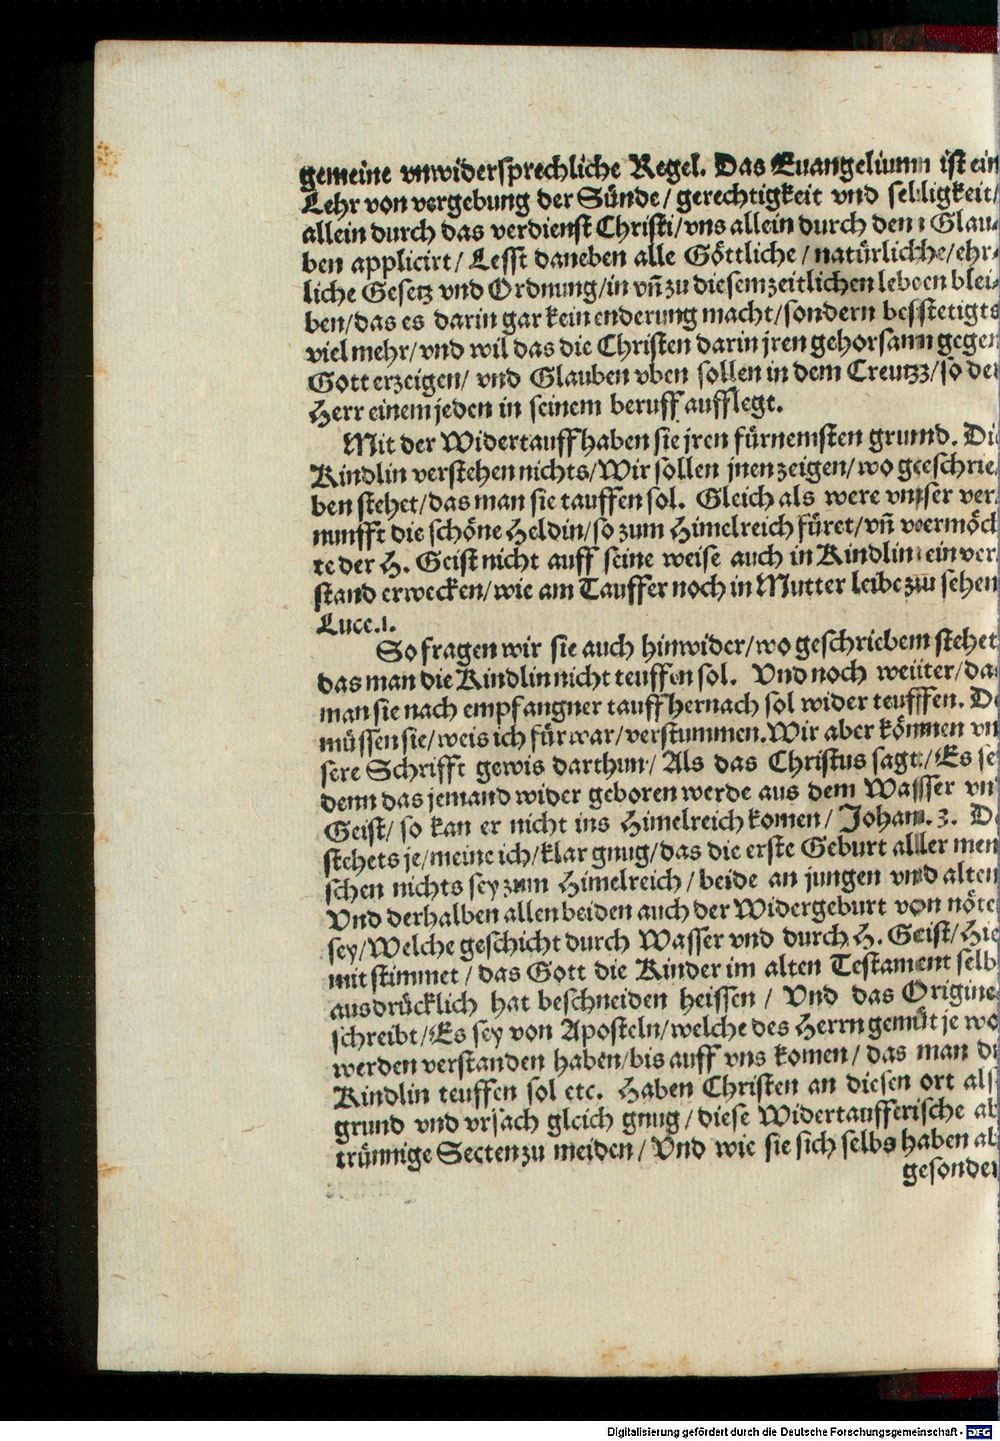 gemeine vnwidersprechliche Regel. Das Euangelium ist ein
Lehr von vergebung der Sünde / gerechtigkeit vnd seligkeit /
allein durch das verdienst Christi / vns allein durch den Glau-
ben applicirt / Lesst daneben alle Göttliche / natürliche / ehr-
liche Gesetz vnd Ordnung / in vn̄ zu diesem zeitlichen leben blei-
ben / das es darin gar kein enderung macht / sondern bestetigts
viel mehr / vnd wil das die Christen darin jren gehorsam gegen
Gott erzeigen / vnd Glauben vben sollen in dem Creutz / so der
Herr einem jeden in seinem beruff aufflegt.
Mit der Widertauff haben sie jren fürnemsten grund. Die
Kindlin verstehen nichts / Wir sollen jnen zeigen / wo geschrie
ben stehet / das man sie tauffen sol. Gleich als were vnser ver
nunfft die schöne Heldin / so zum Himelreich füret / vn̄ vermöch
te der H. Geist nicht auff seine weise auch in Kindlin ein ver
stand erwecken / wie am Tauffer noch in Mutter leibe zu sehen
Luce.1.
So fragen wir sie auch hinwider / wo geschrieben stehet
das man die Kindlin nicht teuffen sol. Vnd noch weiter / da
man sie nach empfangner tauff hernach sol wider teuffen. D
müssen sie / weis ich fürwar / verstummen. Wir aber können vn
sere Schrifft gewis darthun / Als das Christus sagt / Es se
denn das jemand wider geboren werde aus dem Wasser vn
Geist / so kan er nicht ins Himelreich komen / Johan. 3. D
stehets je / meine ich / klar gnug / das die erste Geburt aller men
schen nichts sey zum Himelreich / beide an jungen vnd alten
Vnd derhalben allen beiden auch der Widergeburt von nöte
sey / Welche geschicht durch Wasser vnd durch H. Geist / Hie
mit stimmet / das Gott die Kinder im alten Testament selb
ausdrücklich hat beschneiden heissen / Vnd das Origine
schreibt / Es sey von Aposteln / welche des Herrn gemüt je wo
werden verstanden haben / bis auff vns komen / das man di
Kindlin teuffen sol etc. Haben Christen an diesen ort als
grund vnd vrsach gleich gnug / diese Widertaufferische ab
trünnige Secten zu meiden / Vnd wie sie sich selbs haben ab
gesonder
Digitalisierung gefördert durch die Deutsche Forschungsgemeinschaft - DFG